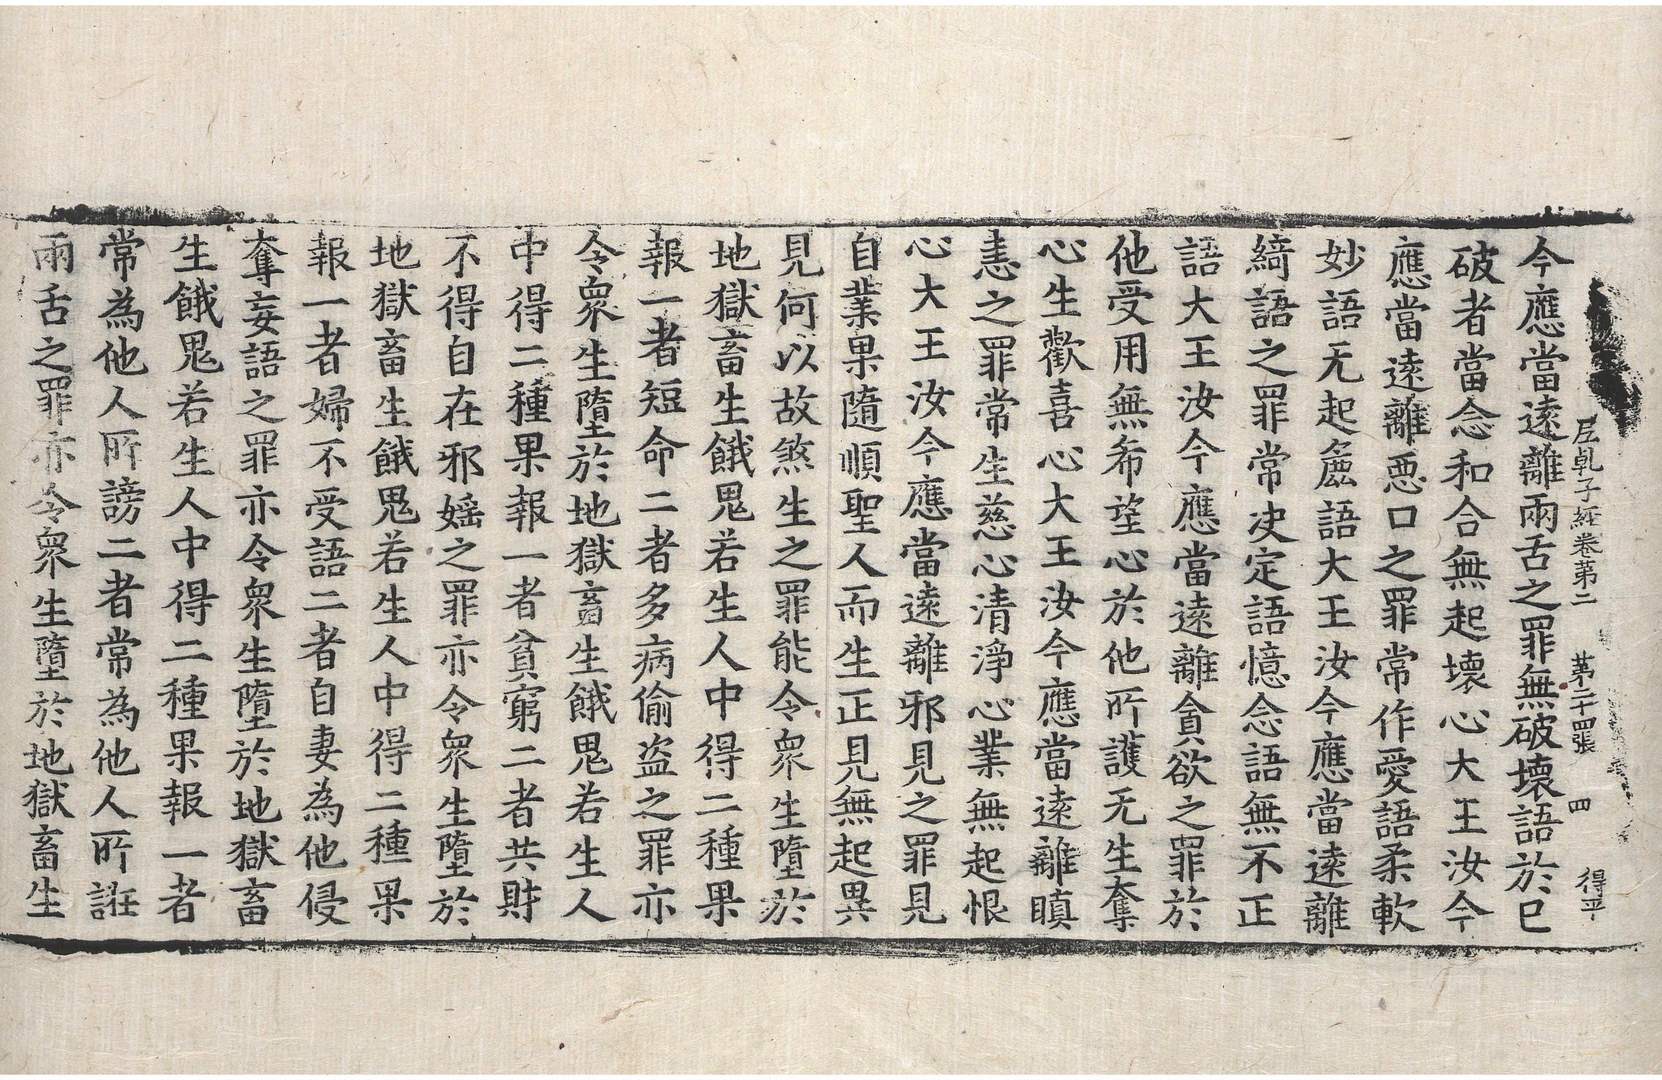 尼乹子経卷第二 第二十四張 四 得平
今應當遠離兩舌之罪無破壞語於已
破者當念和合無起壞心大王汝今
應當遠離惡口之罪常作愛語柔軟
妙語无起麁語大王汝今應當遠離
綺語之罪常决定語憶念語無不正
語大王汝今應當遠離貪欲之罪於
他受用無希望心於他所護无生奪
心生歡喜心大王汝今應當遠離瞋
恚之罪常生慈心清淨心業無起恨
心大王汝今應當遠離邪見之罪見
自業果隨順聖人而生正見無起異
見何以故煞生之罪能令衆生墮於
地獄畜生餓鬼若生人中得二種果
報一者短命二者多病偷盗之罪亦
令衆生墮於地獄畜生餓鬼若生人
中得二種果報一者貧窮二者共財
不得自在邪婬之罪亦令衆生墮於
地獄畜生餓鬼若生人中得二種果
報一者婦不受語二者自妻為他侵
奪妄語之罪亦令衆生墮於地獄畜
生餓鬼若生人中得二種果報一者
常為他人所謗二者常為他人所誑
兩舌之罪亦令衆生墮於地獄畜生